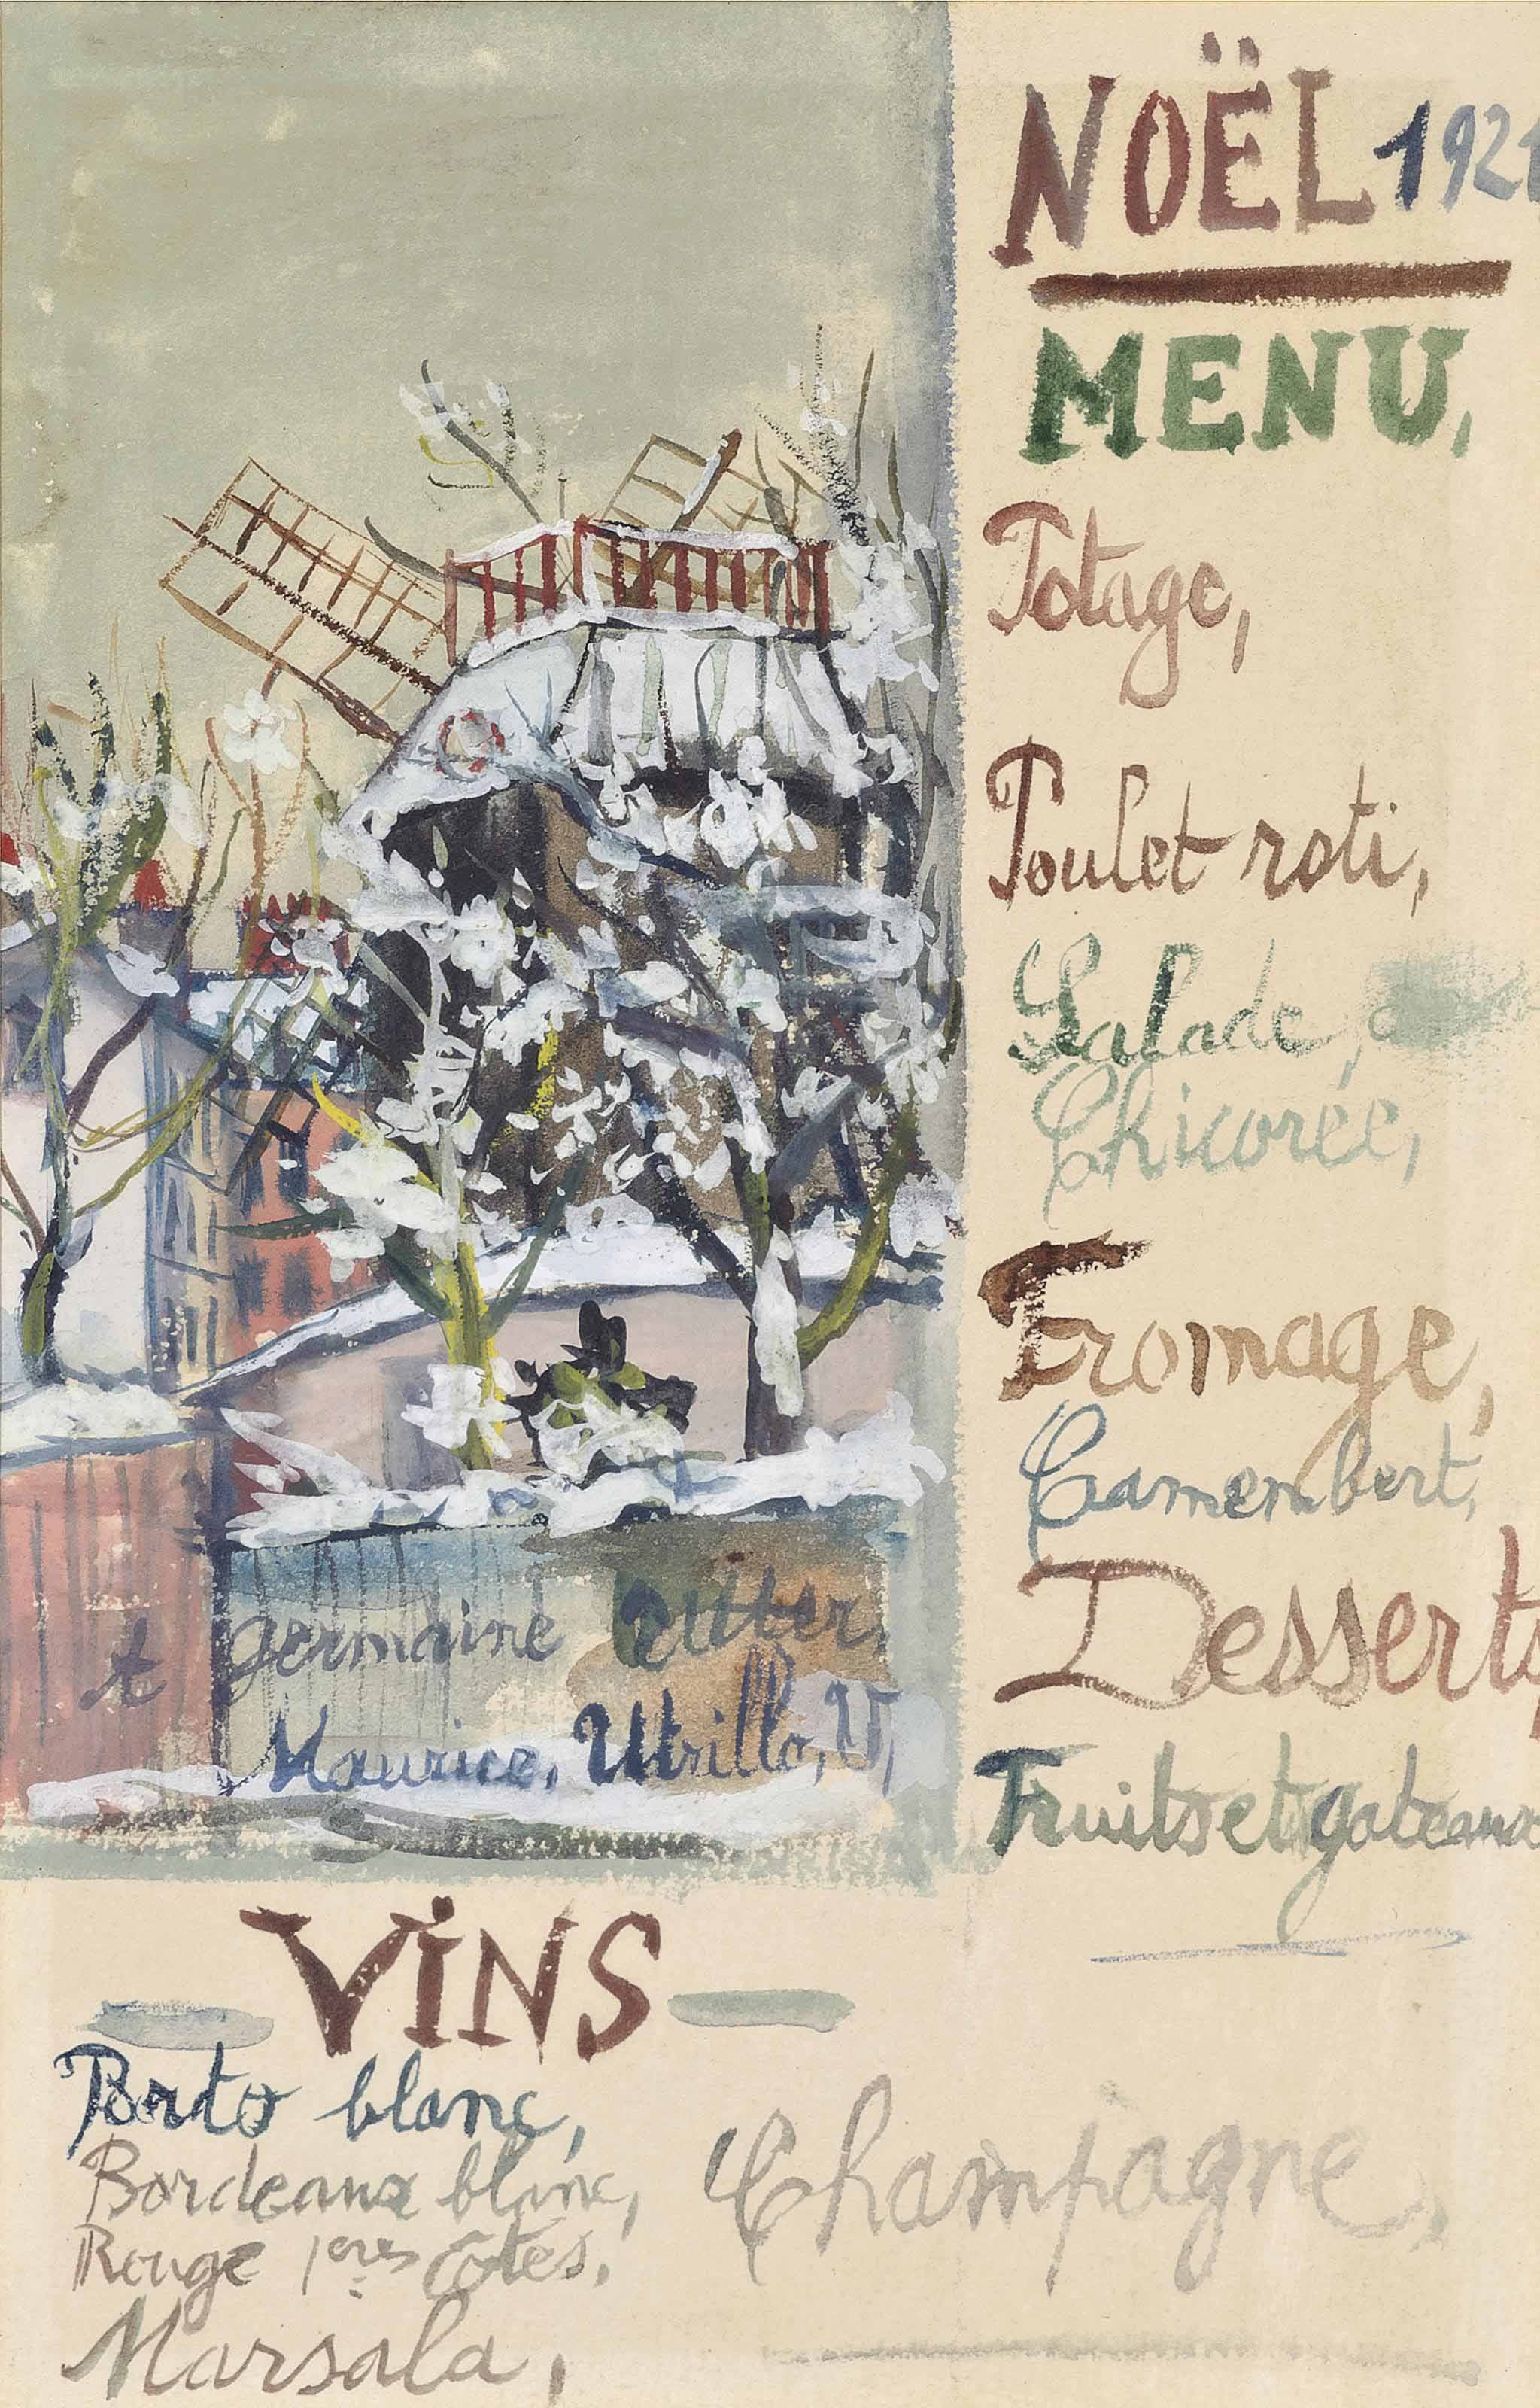 NOËL 1921
MENU,
Potage,
Poulet roti,
Salade,
Chicorée,
Fromage,
Camembert,
Desserts
Fruits et gateaux
t germaine Utter,
Maurice, Utrillo, V,
VINS
Porto blanc,
Bordeaux blanc,
Rouge 1eres côtes,
Marsala,
Champagne,